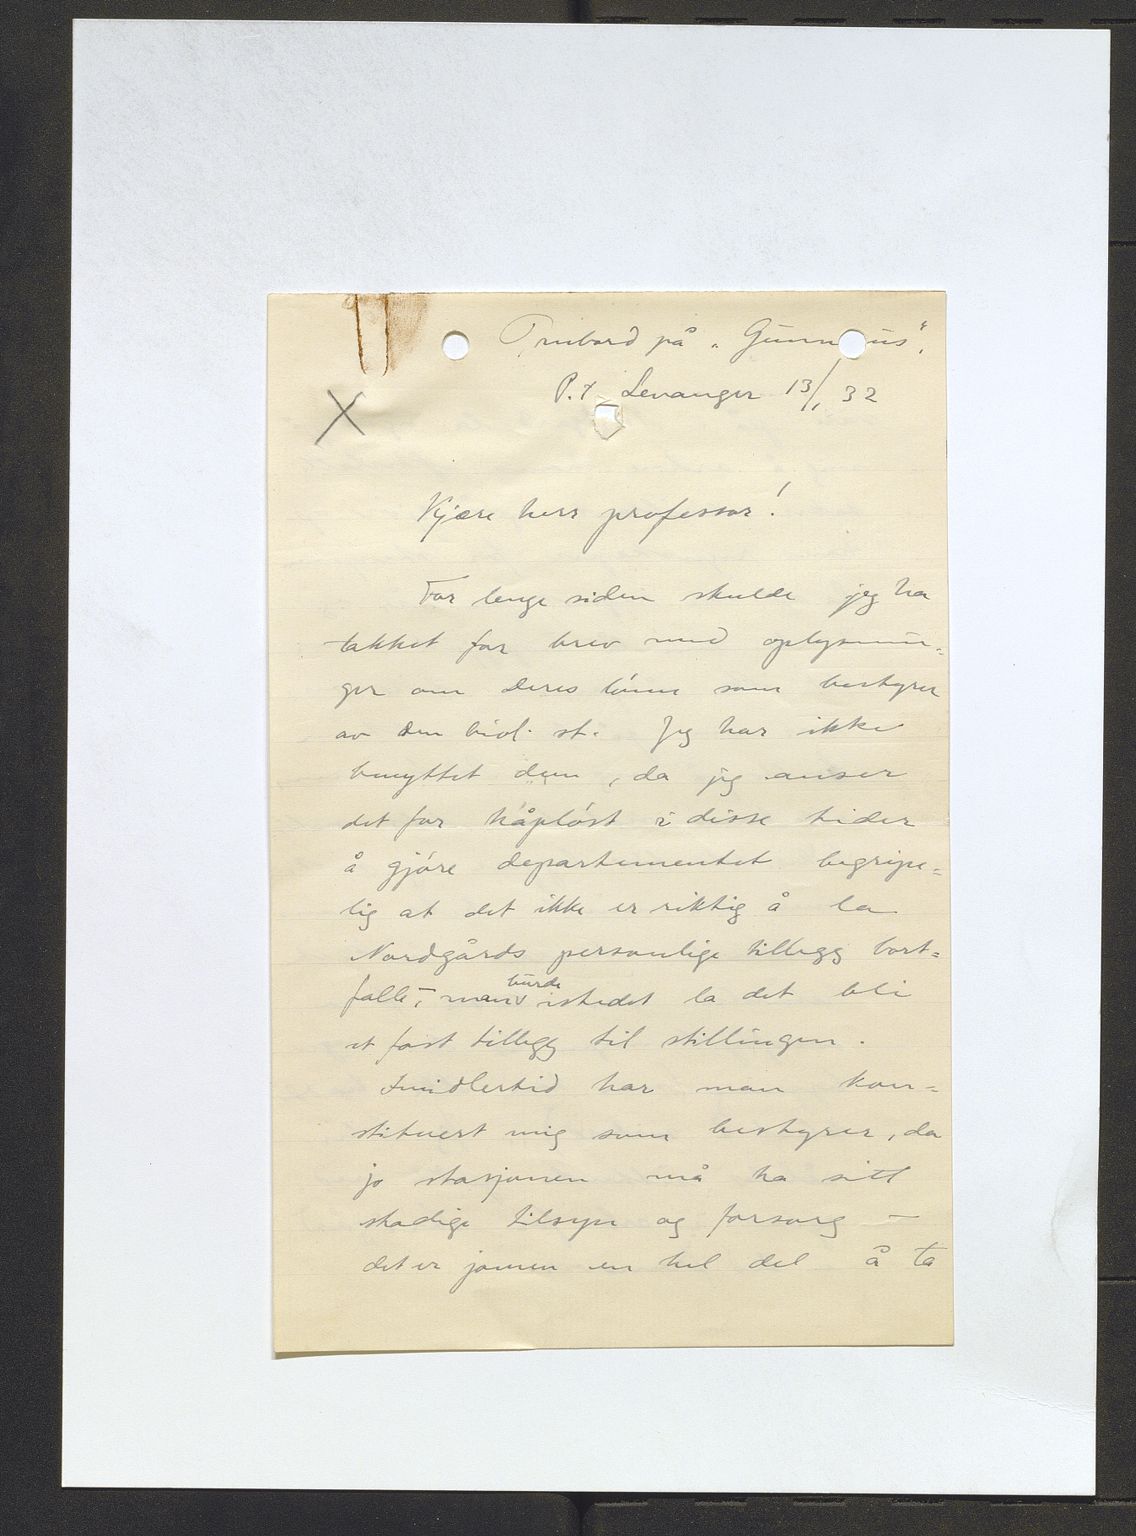 Ombord på „Gunn us“.
P.t. Levanger 13/1 32
X
Kjære herr professor!
For lenge siden skulde jeg ha
takket for brev med oplysnin-
ger om Deres lønn som bestyrer
av den biol. st. Jeg har ikke
benyttet dem, da jeg anser
det for håpløst i disse tider
å gjøre departementet begripe-
lig at det ikke er riktig å la
Nordgårds personlige tillegg bort-
falle, – man burde istedet la det bli
et fast tillegg til stillingen.
Imidlertid har man kon-
stituert mig som bestyrer, da
jo stasjonen må ha sitt
stadige tilsyn og forsorg –
det er jamen en hel del å ta